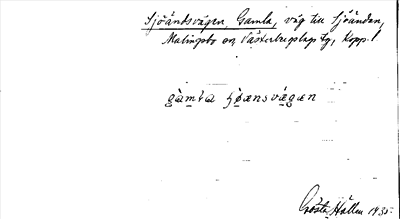 Sjöändsvägen, Gamla, väg till Sjöänden,
Malingsbo sn, Västerbergslags tg, Kopp. l
gàmla ʃø̀ænsvǽgæn
Gösta Hållen 1935